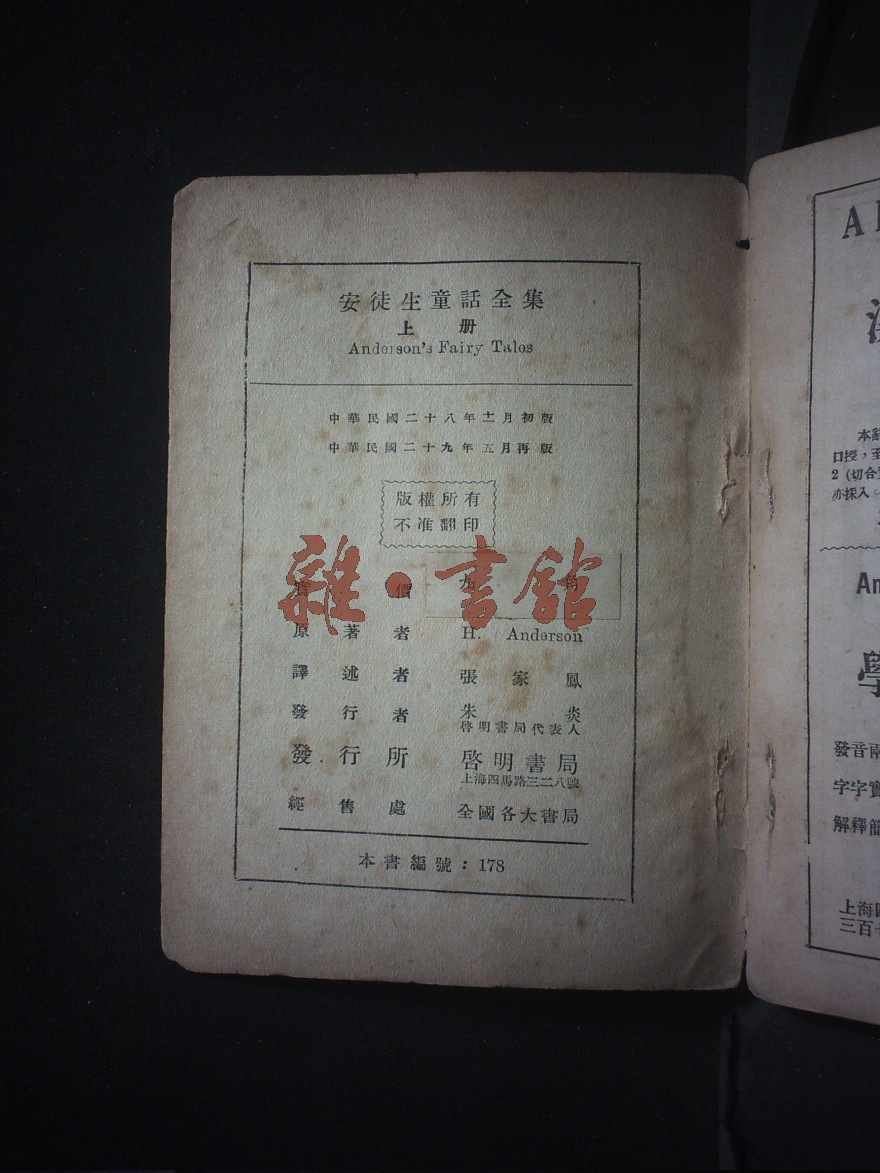 安徒生童話全集
上册
Anderson's Fairy Tales
中華民國二十八年十二月初版
中華民國二十九年五月再版
版權所有
不准翻印
雜·書館
價 九角
原著者 H. Anderson
譯述者 張家鳳
發行者 朱炎
啓明書局代表人
發行所 啓明書局
上海四馬路三二八號
經售處 全國各大書局
本書編號：178
A
本
口授，至
2（切合
亦採入。
An
學
發音兩
字字實
解釋
上海四
三百